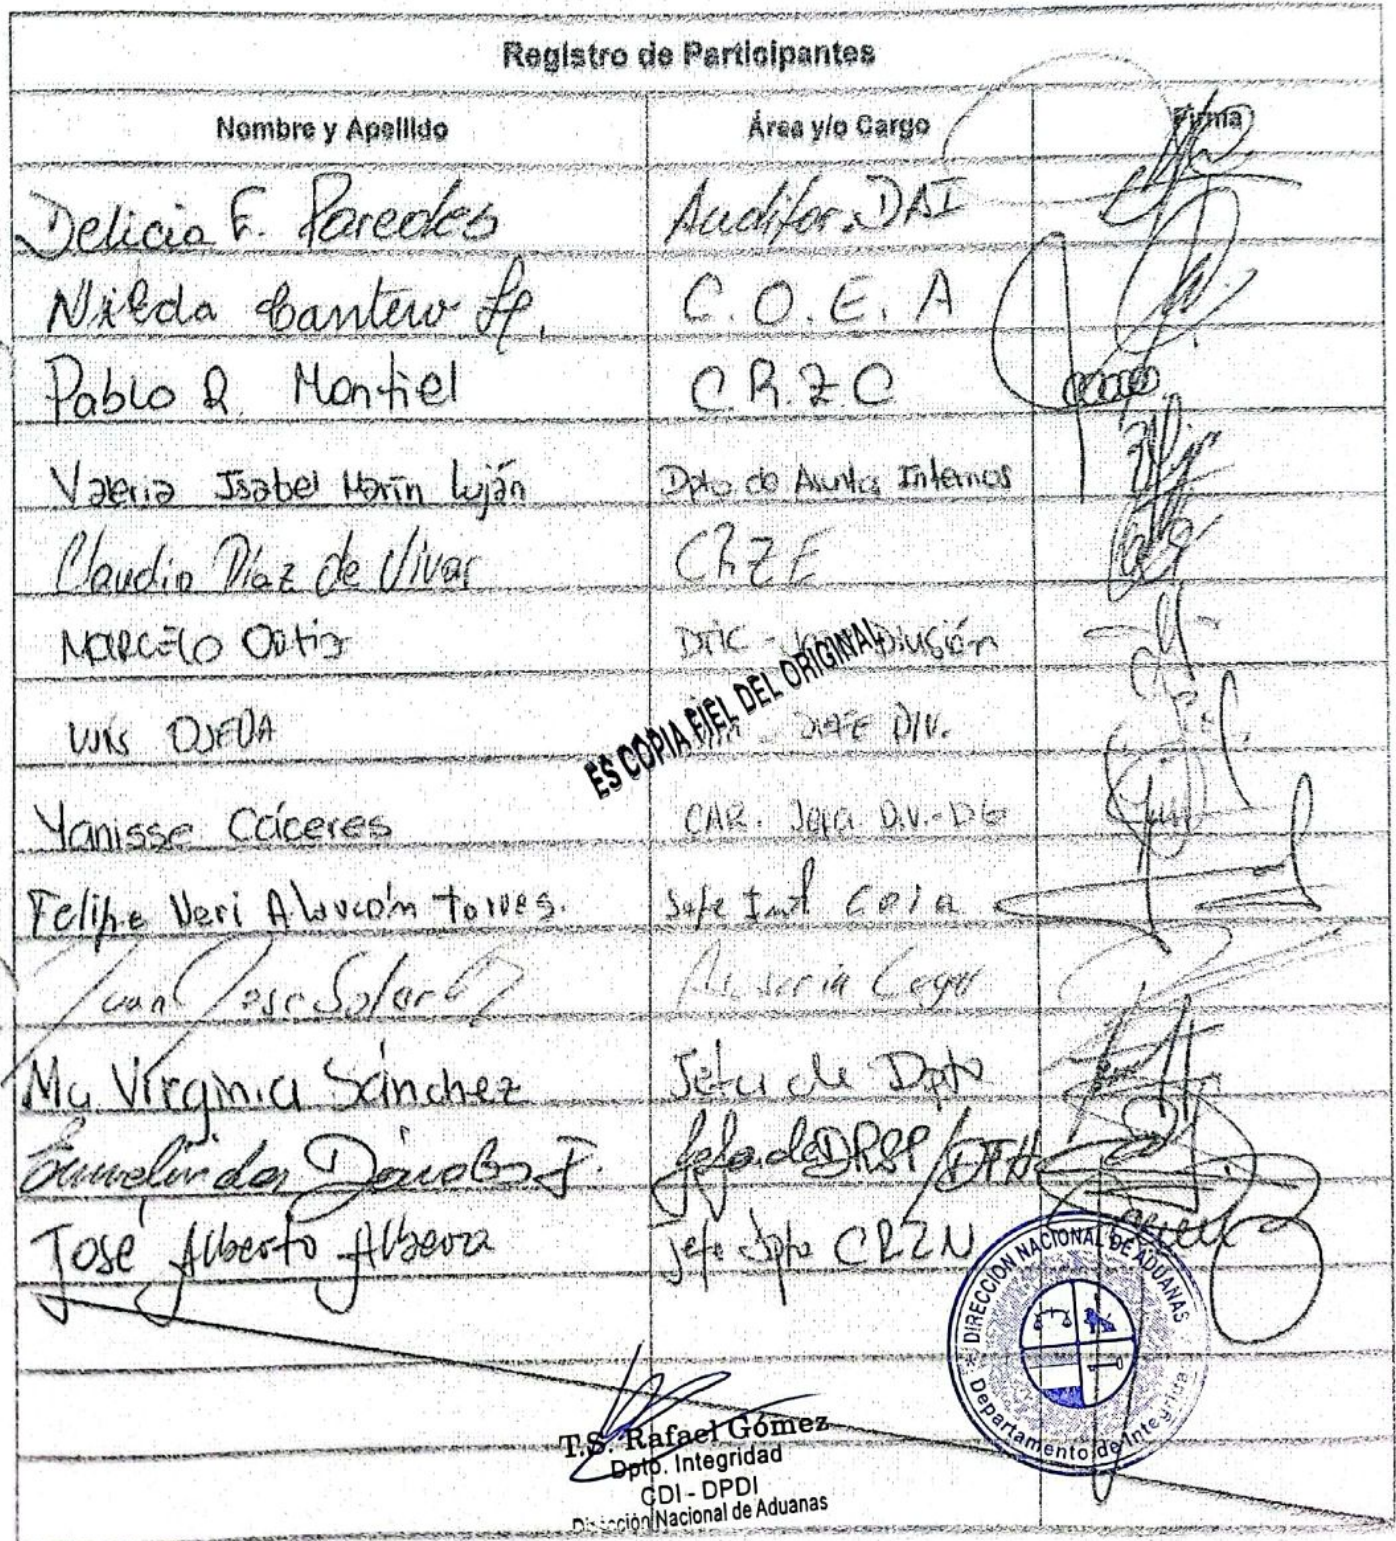 Registro de Participantes
Nombre y Apellido Área y/o Cargo Firma
Delicia F. Paredes Auditor DAI
Nilda Cantero C.O.E.A
Pablo R. Montiel C.R.Z.C
Valeria Isabel Marín Luján Dpto. de Asuntos Internos
Claudio Díaz de Vivar CRZE
MARCELO Ortiz DTIC - División
LUIS OJEDA JEFE DIV.
Yanisse Cáceres CAR. Jefa DIV.-DG
Felipe Neri Alarcón Torres. Jefe
Juan José Asesoria Legal
Ma. Virginia Sánchez Jefa de Dpto
Jefa de DRSP/DTH
José Alberto Jefe Dpto CRZN
ES COPIA FIEL DEL ORIGINAL
DIRECCIÓN NACIONAL DE ADUANAS
Departamento de Integridad
T.S. Rafael Gómez
Dpto. Integridad
CDI - DPDI
Dirección Nacional de Aduanas